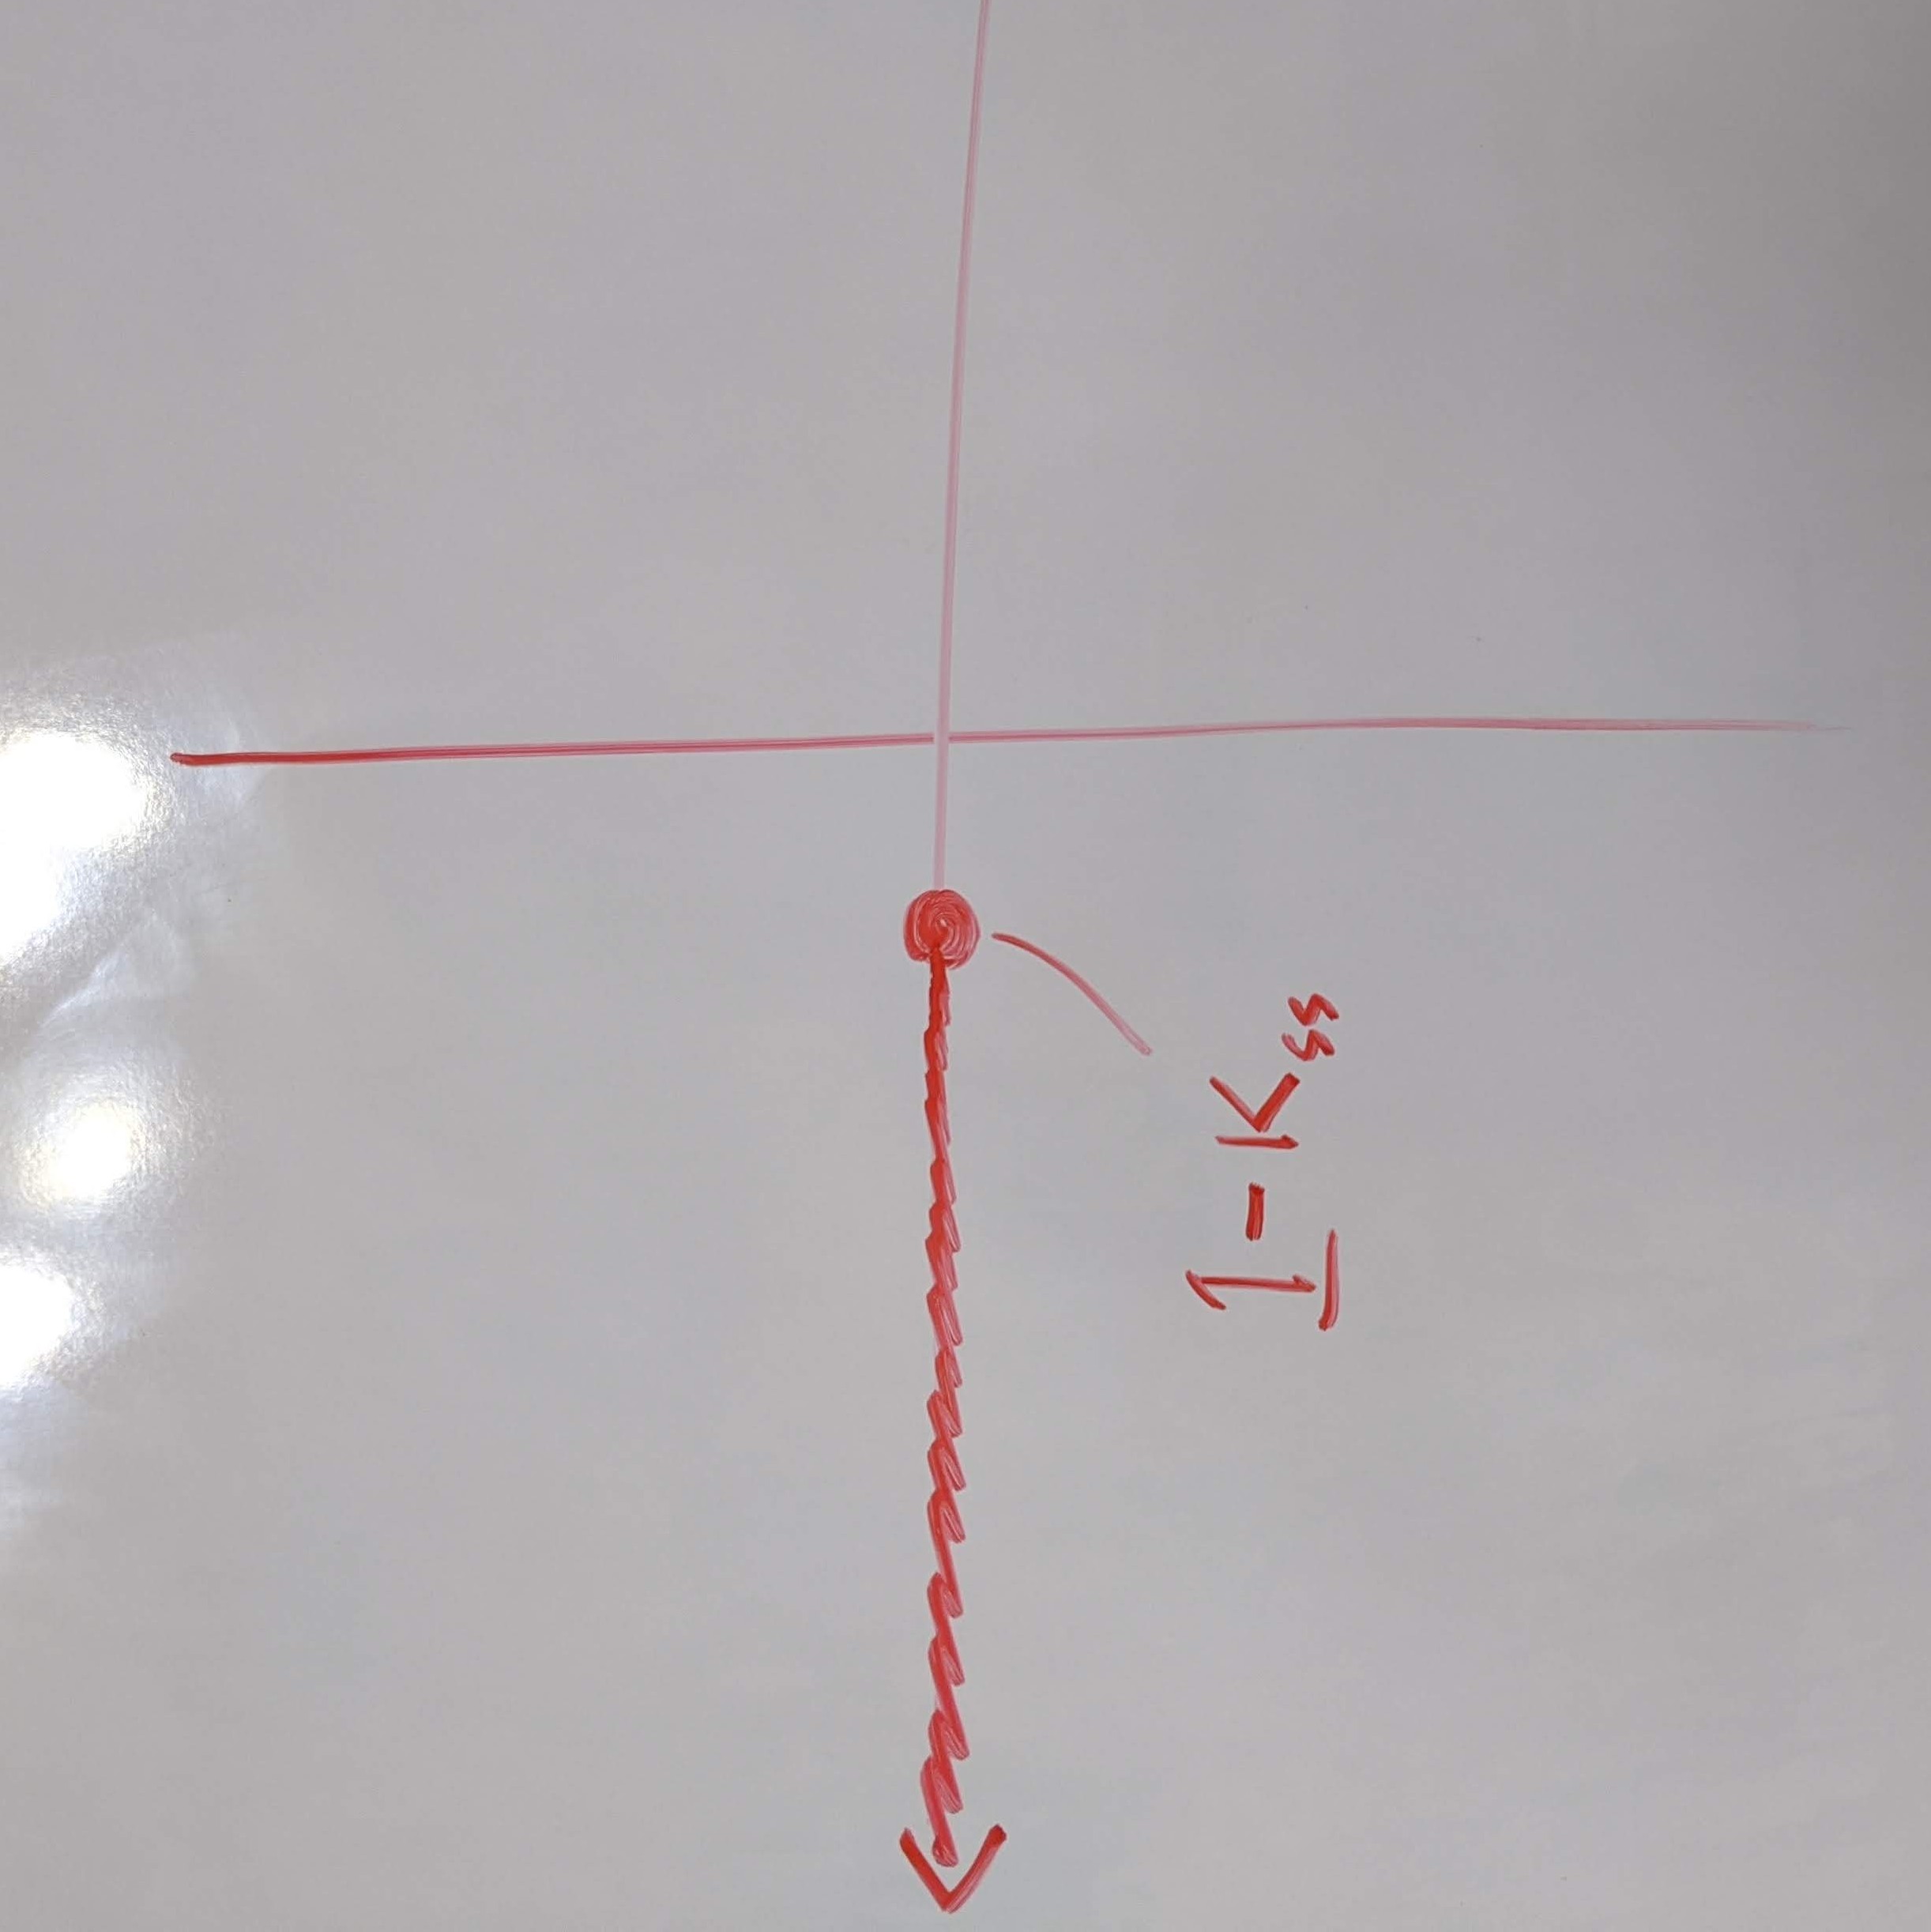 1 - K_ss